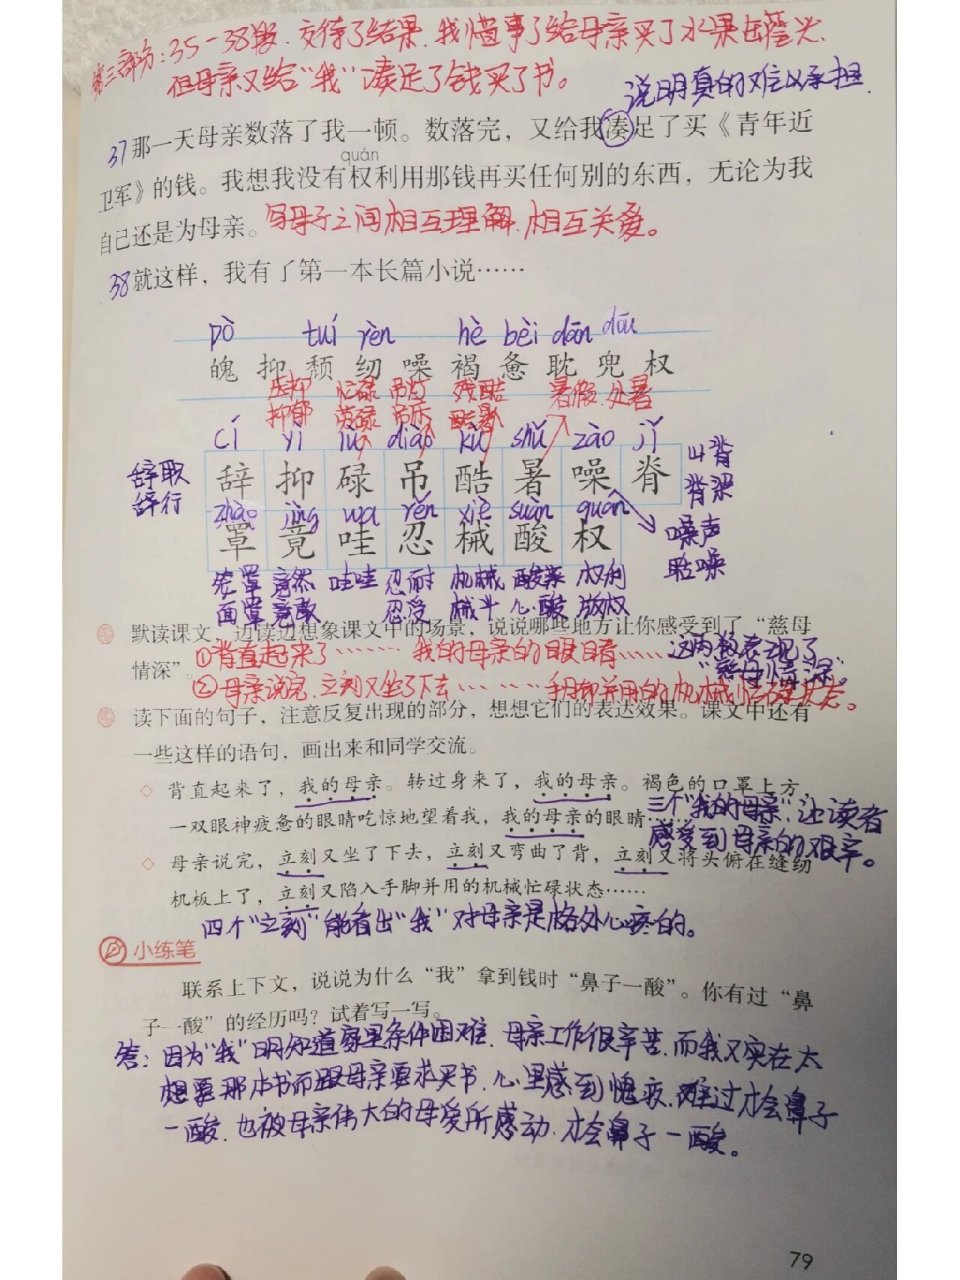 第三部分：35－38段.交待了结果.我懂事了给母亲买了水果罐头.
但母亲又给“我”凑足了钱买了书。
说明真的难以承担.
37那一天母亲数落了我一顿。数落完，又给我凑足了买《青年近
quán
卫军》的钱。我想我没有权利用那钱再买任何别的东西，无论为我
自己还是为母亲。写母子之间相互理解.相互关爱。
38就这样，我有了第一本长篇小说……
pò tuí rèn hè bèi dān dōu
魄 抑 颓 纫 噪 褐 惫 耽 兜 权
压抑 忙碌 吊灯 残酷 暑假.处暑
抑郁 劳碌 吊 酷暑
cí yì lù diào kù shǔ zào jǐ
辞取 辞 抑 碌 吊 酷 暑 噪 脊 背
辞行 脊梁
zhào jìng wa rěn xiè suān quán
罩 竟 哇 忍 械 酸 权 噪声
聒噪
罩 竟然 哇哇 忍耐 机械 酸菜 权利
面罩 竟敢 忍受 械斗 心酸 版权
默读课文，边读边想象课文中的场景，说说哪些地方让你感受到了“慈母
情深”。①背直起来了……我的母亲的眼睛……这两处表现了
“慈母情深”
②母亲说完.立刻又坐了下去………手脚并用的机械忙碌状态。
读下面的句子，注意反复出现的部分，想想它们的表达效果。课文中还有
一些这样的语句，画出来和同学交流。
◇ 背直起来了，我的母亲。转过身来了，我的母亲。褐色的口罩上方，
一双眼神疲惫的眼睛吃惊地望着我，我的母亲的眼睛……
三个“我的母亲”让读者
感受到母亲的艰辛。
◇ 母亲说完，立刻又坐了下去，立刻又弯曲了背，立刻又将头俯在缝纫
机板上了，立刻又陷入手脚并用的机械忙碌状态……
四个“立刻”能看出“我”对母亲是格外心疼的。
小练笔
联系上下文，说说为什么“我”拿到钱时“鼻子一酸”。你有过“鼻
子一酸”的经历吗？试着写一写。
答：因为“我”明知道家里条件困难.母亲工作很辛苦.而我又实在太
想要那本书而跟母亲要求买书.心里感到愧疚.难过才会鼻子
一酸.也被母亲伟大的母爱所感动.才会鼻子一酸。
79